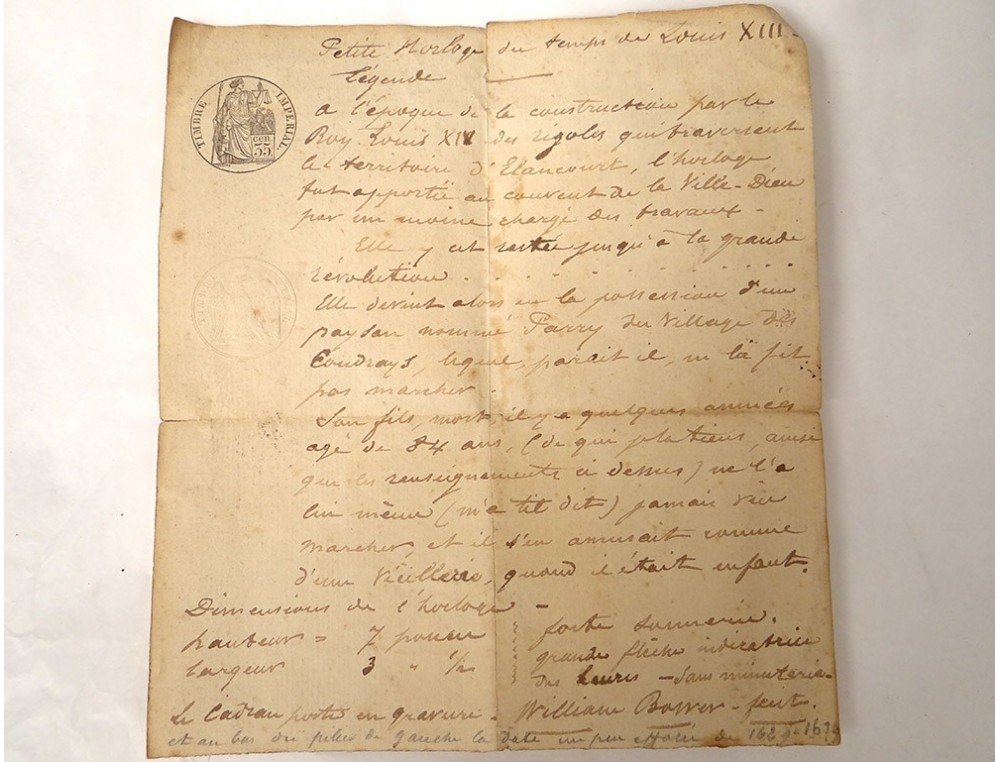 Petite Horloge du temps de Louis XIII -
Légende
TIMBRE IMPERIAL
35 cen.
A l'époque de la construction par le
Roy Louis XIV des rigoles qui traversent
le territoire d'Elancourt, l'horloge,
fut apportée au couvent de la Ville-Dieu
par un moine chargé des travaux -
Elle y est restée jusqu'à la grande
révolution . . . . . . . . .
Elle devint alors en la possession d'un
paysan nommé Parry du Village des
Coudrays, lequel, parait il, ne la fit
pas marcher -
Son fils, mort, il y a quelques années
agé de 84 ans, (de qui je la tiens, ainsi
que les renseignements ci dessus) ne l'a
lui même (m'a til dit) jamais vue
marcher, et il s'en amusait comme
d'une Vieillerie, quand il était enfant.
Dimensions de l'horloge -
hauteur = 7 pouces
largeur 3 " 1/2
forte sonnerie.
grande flèche indicatrice
des heures - Sans minuterie -
Le Cadran porte en gravure - William Bower - fecit.
et au bas du pilier de gauche la date un peu effacée de 1629 - 167